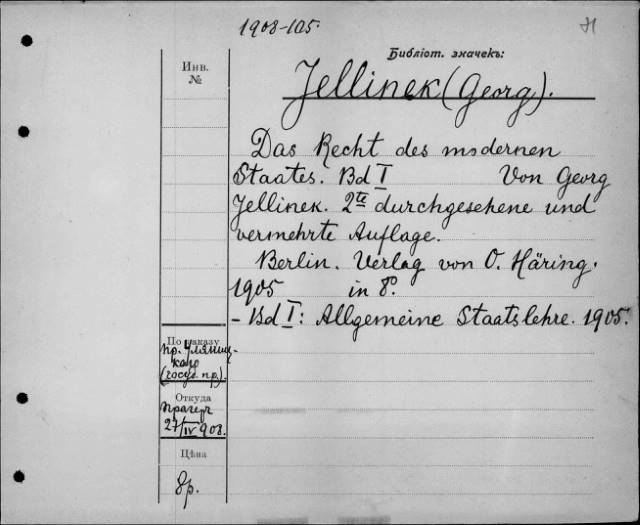 1908-105.
Библіот. значекъ:
Инв.
№
Jellinek (Georg).
Das Recht des modernen
Staates. Bd I Von Georg
Jellinek. 2te durchgesehene und
vermehrte Auflage.
Berlin. Verlag von O. Häring.
1905 in 8°.
- Bd I: Allgemeine Staatslehre. 1905.
По заказу
пр.
каго
(госуд. пр.)
Откуда
Прагеръ
27/IV 908.
Цѣна
8р.